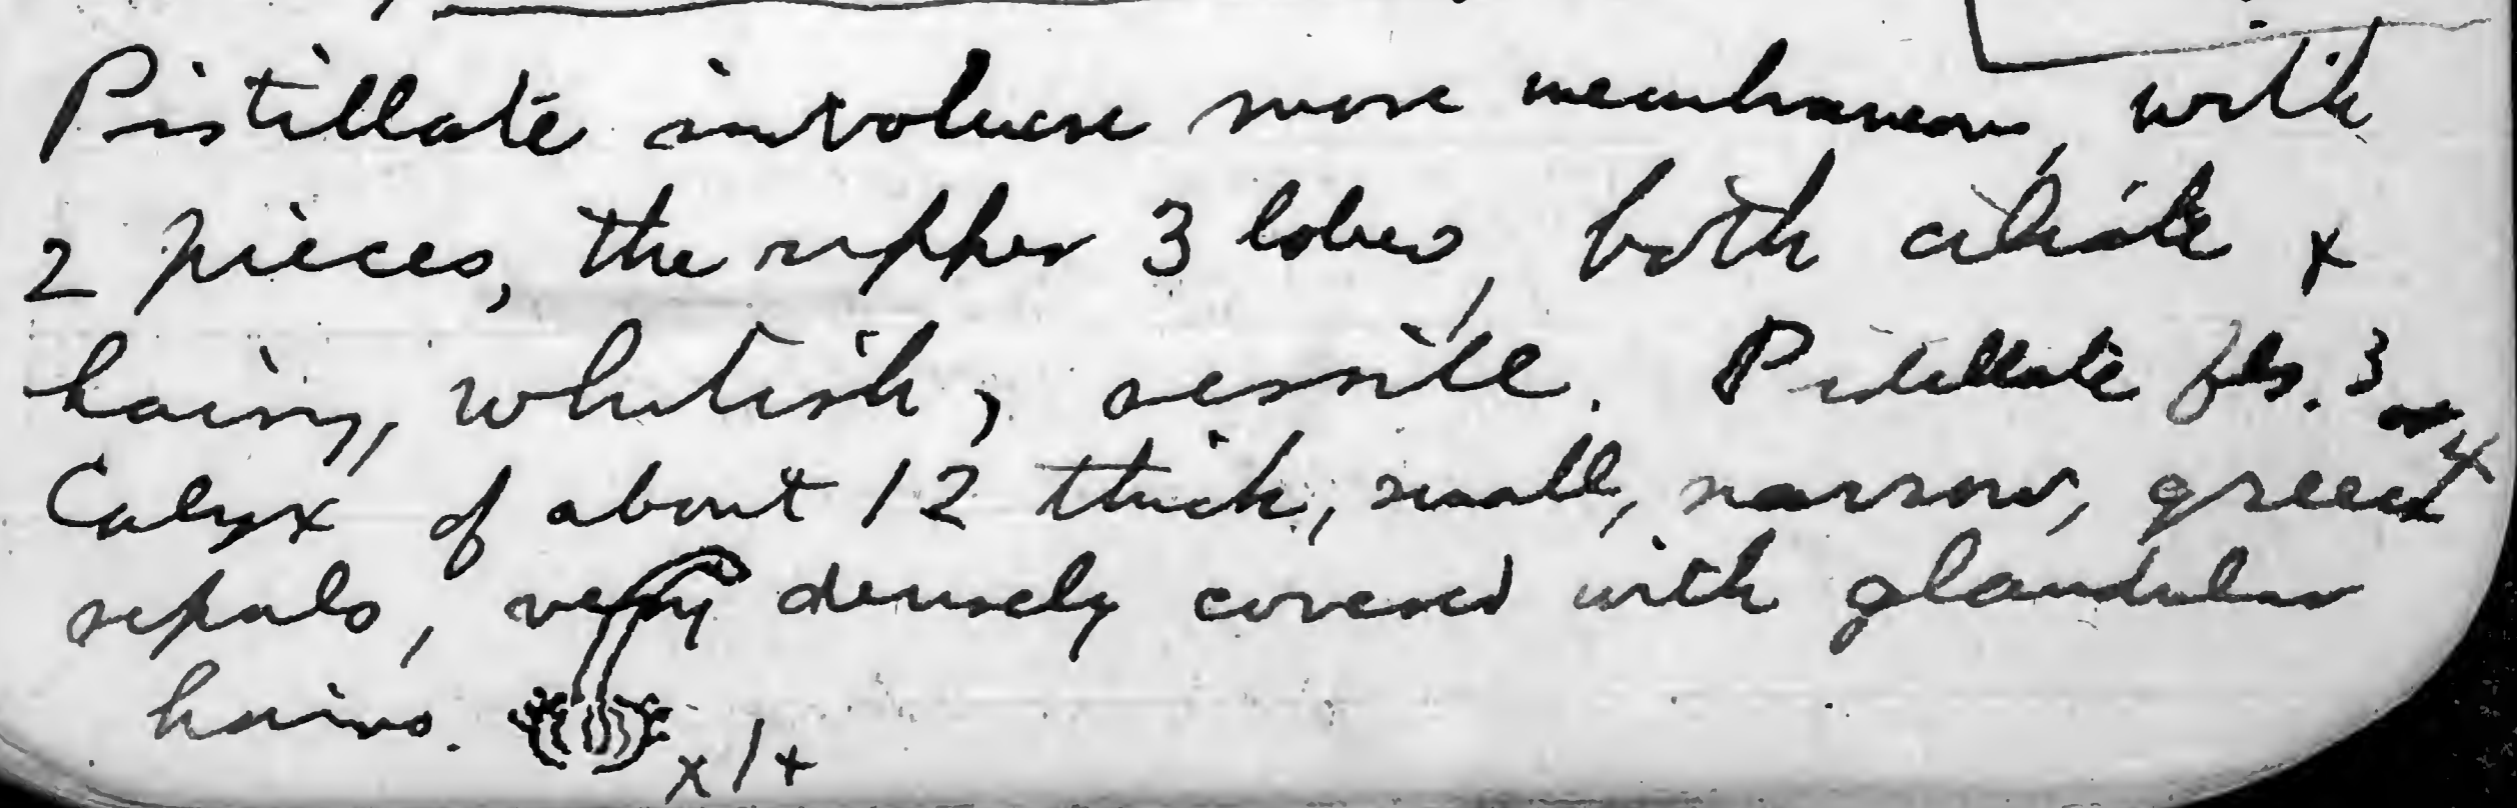 Pistillate involucre more membraneous, with
2 pieces, the upper 3 lobes, both ciliate x
hairy, whitish, sessile. Pistillate fls. 3 or 4
Calyx of about 12 thick, small, narrow, green
sepals, very densely covered with glandular
hairs. x 1+